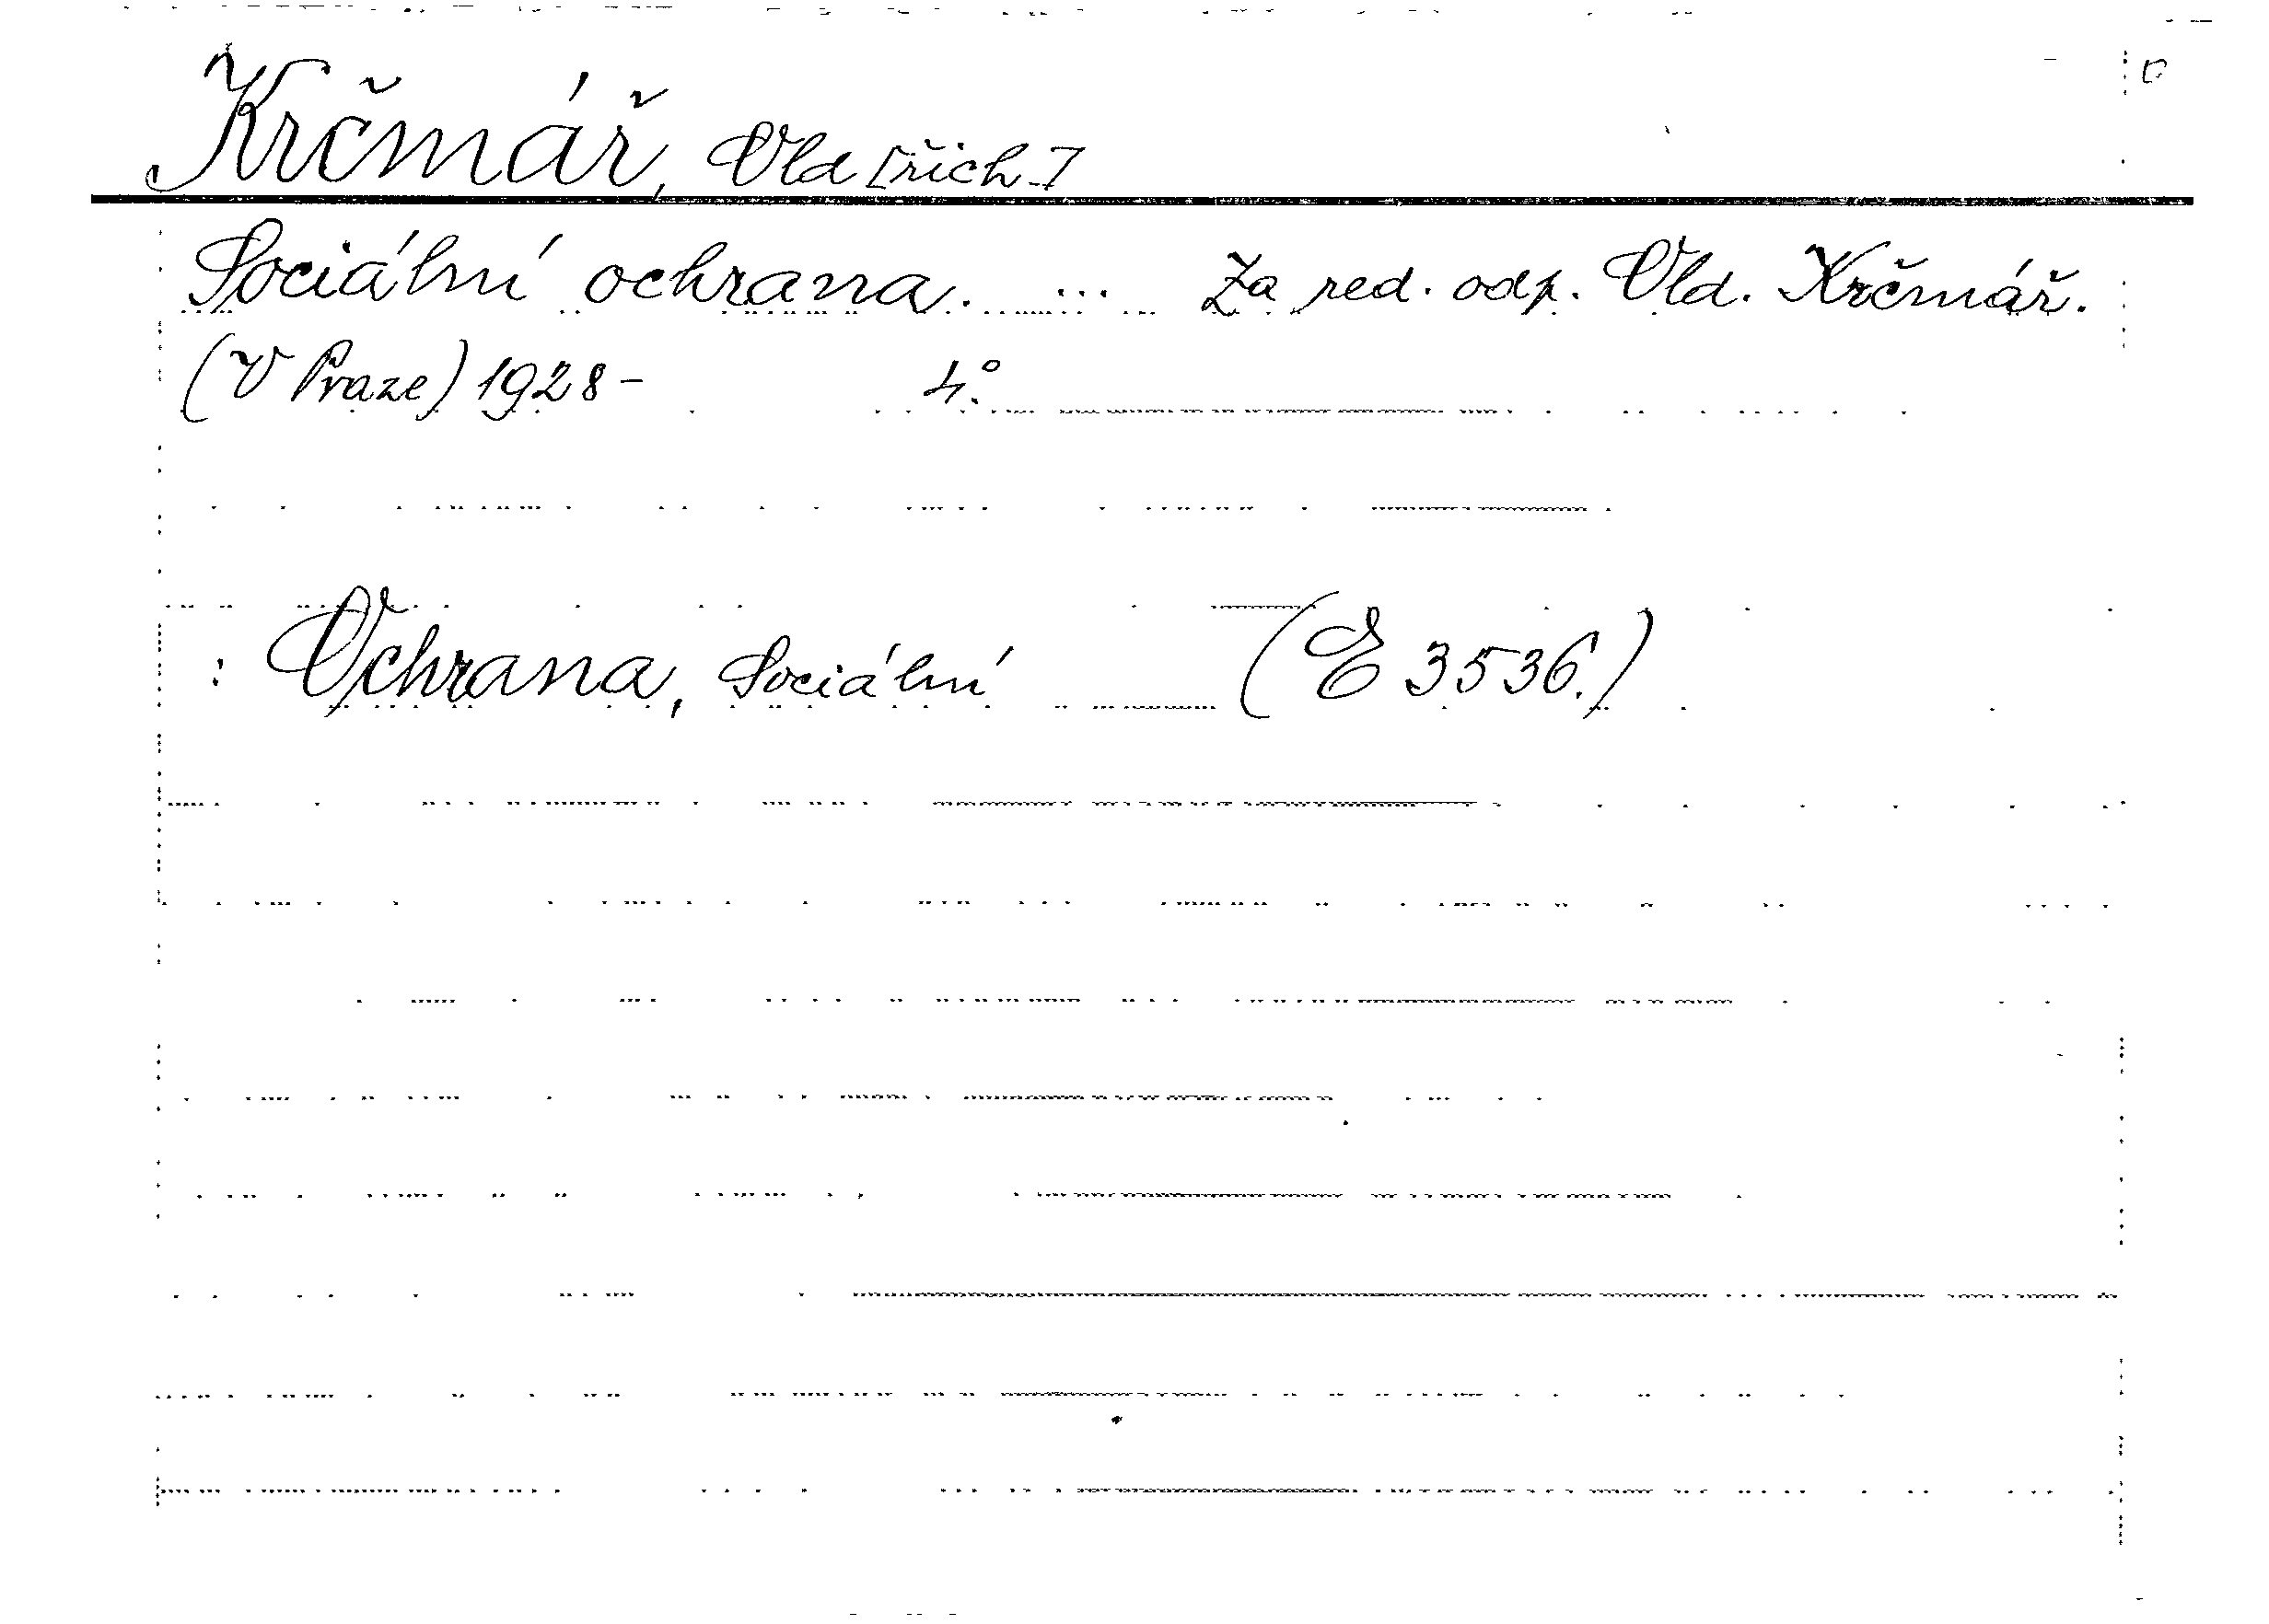 Krčmář, Old[řich]
Sociální ochrana. ... Za red. odp. Old. Krčmář.
(V Praze) 1928- 4°.
: Ochrana, Sociální (E 3536.)